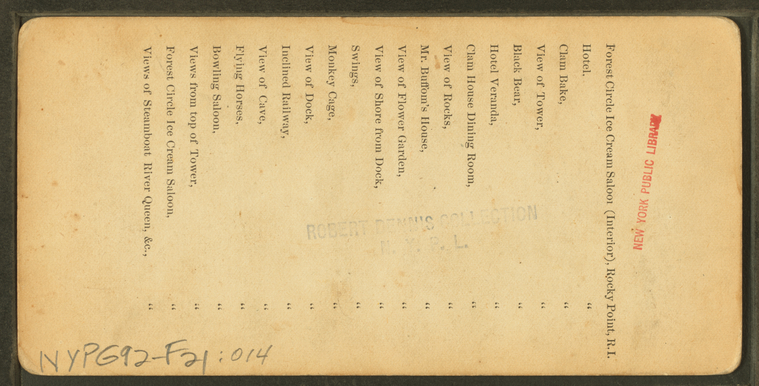 Forest Circle Ice Cream Saloon (Interior), Rocky Point, R.I.
Hotel, "
Clam Bake, "
View of Tower, "
Black Bear, "
Hotel Veranda, "
Clam House Dining Room, "
View of Rocks, "
Mr. Buffom's House, "
View of Flower Garden, "
View of Shore from Dock, "
Swings, "
Monkey Cage, "
View of Dock, "
Inclined Railway, "
View of Cave, "
Flying Horses, "
Bowling Saloon, "
Views from top of Tower, "
Forest Circle Ice Cream Saloon, "
Views of Steamboat River Queen, &c., "
NEW YORK PUBLIC LIBRARY
ROBERT DENNIS COLLECTION
N. Y. P. L.
NYPG92-F21:014